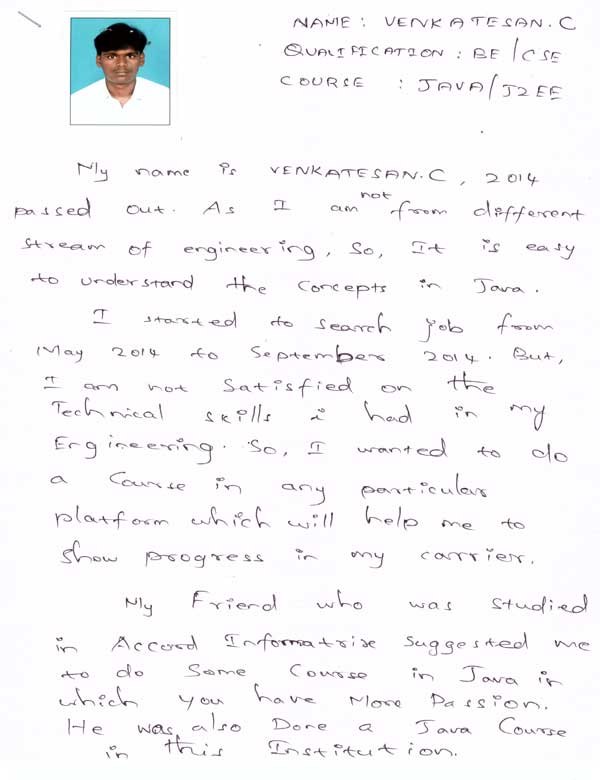 NAME : VENKATESAN.C
QUALIFICATION : BE/CSE
COURSE : JAVA/J2EE
My name is VENKATESAN.C, 2014
passed out. As I am not from different
stream of engineering, So, It is easy
to understand the concepts in Java.
I started to search job from
May 2014 to September 2014. But,
I am not Satisfied on the
Technical skills i had in my
Engineering. So, I wanted to do
a Course in any particular
platform which will help me to
show progress in my carrier.
My Friend who was studied
in Accord Informatrix suggested me
to do Some Course in Java in
which you have More Passion.
He was also Done a Java Course
in this Institution.